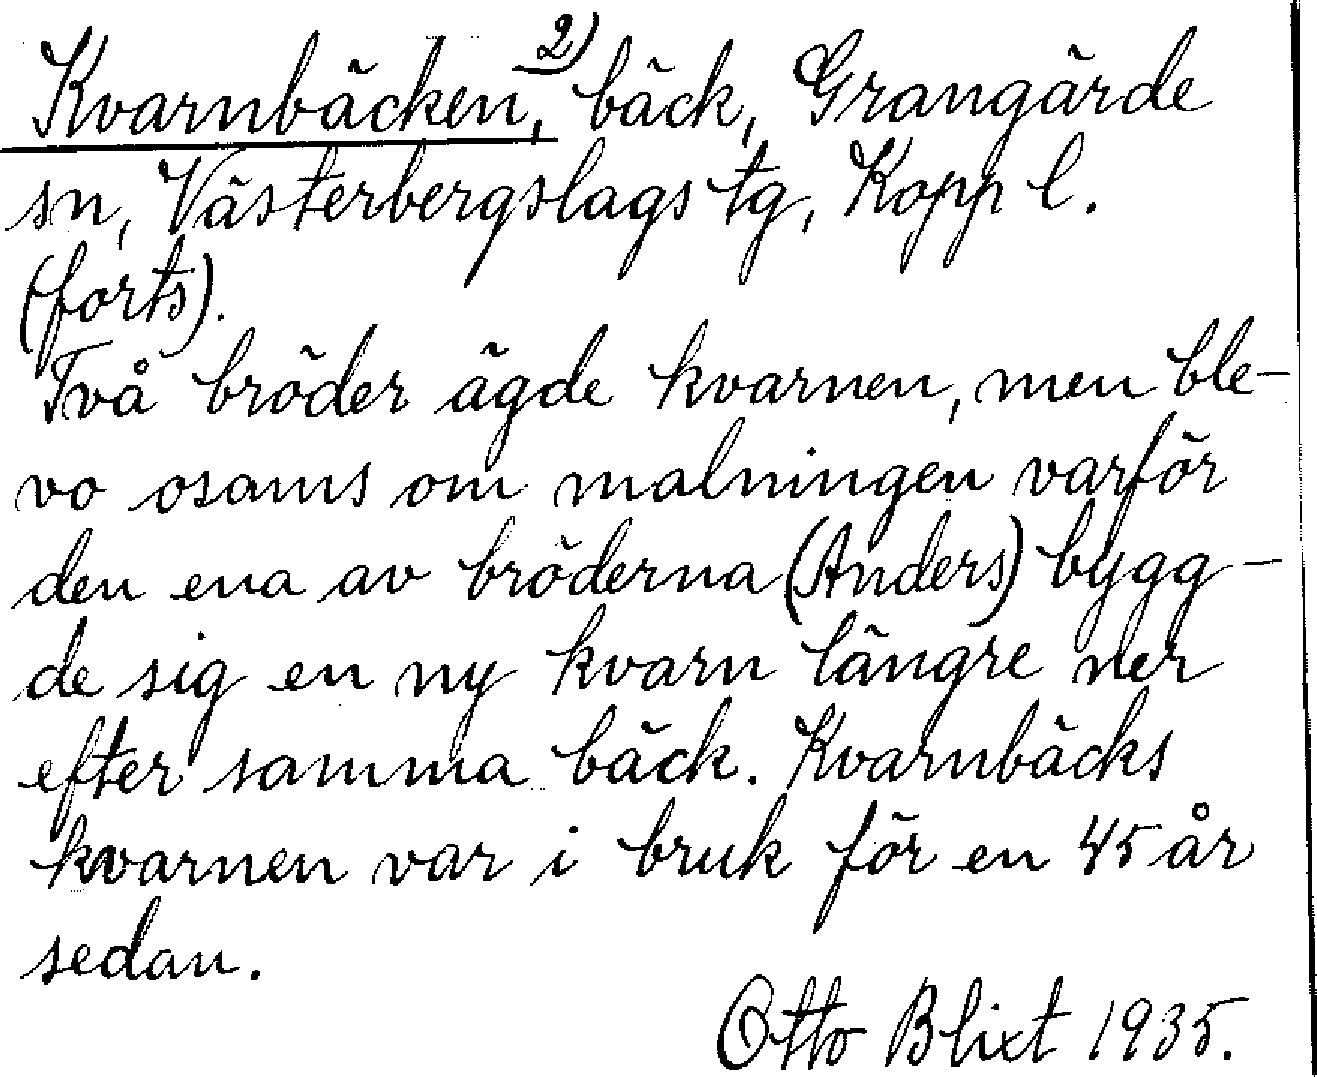 Kvarnbäcken,²⁾ bäck, Grangärde
sn, Västerbergslags tg, Kopp l.
(forts).
Två bröder ägde kvarnen, men ble-
vo osams om malningen varför
den ena av bröderna (Anders) bygg-
de sig en ny kvarn längre ner
efter samma bäck. Kvarnbäcks
kvarnen var i bruk för en 45 år
sedan.
Otto Blixt 1935.